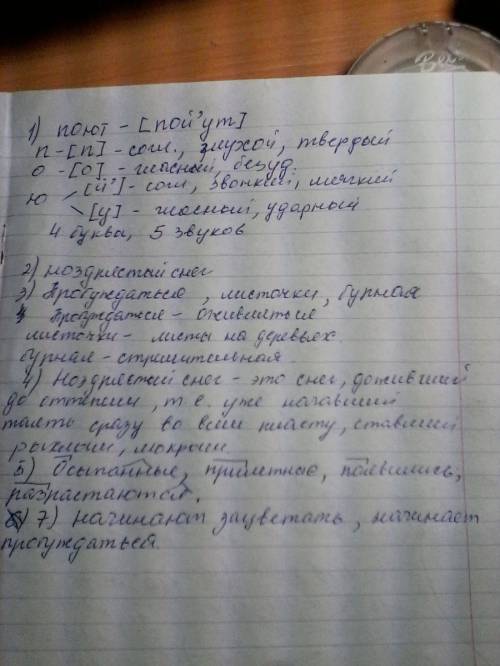 1) поют - [пой'ут]
п - [п] - согл., глухой, твердый
о - [о] - гласный, безуд.
ю [й'] - согл, звонкий, мягкий
[у] - гласный, ударный
4 буквы, 5 звуков
2) ноздрястый снег
3) Пробуждаться, листочки, бурная
Пробуждаться - оживляться
листочки - листы на деревьях.
бурная - стремительная.
4) Ноздрястый снег - это снег, доживший
до оттепели, т.е. уже начавший
таять сразу во всем пласту, ставший
рыхлым, мокрым.
5) Осыпанные, прилетные, появились,
разрастаются.
7) начинают зацветать, начинает
пробуждаться.